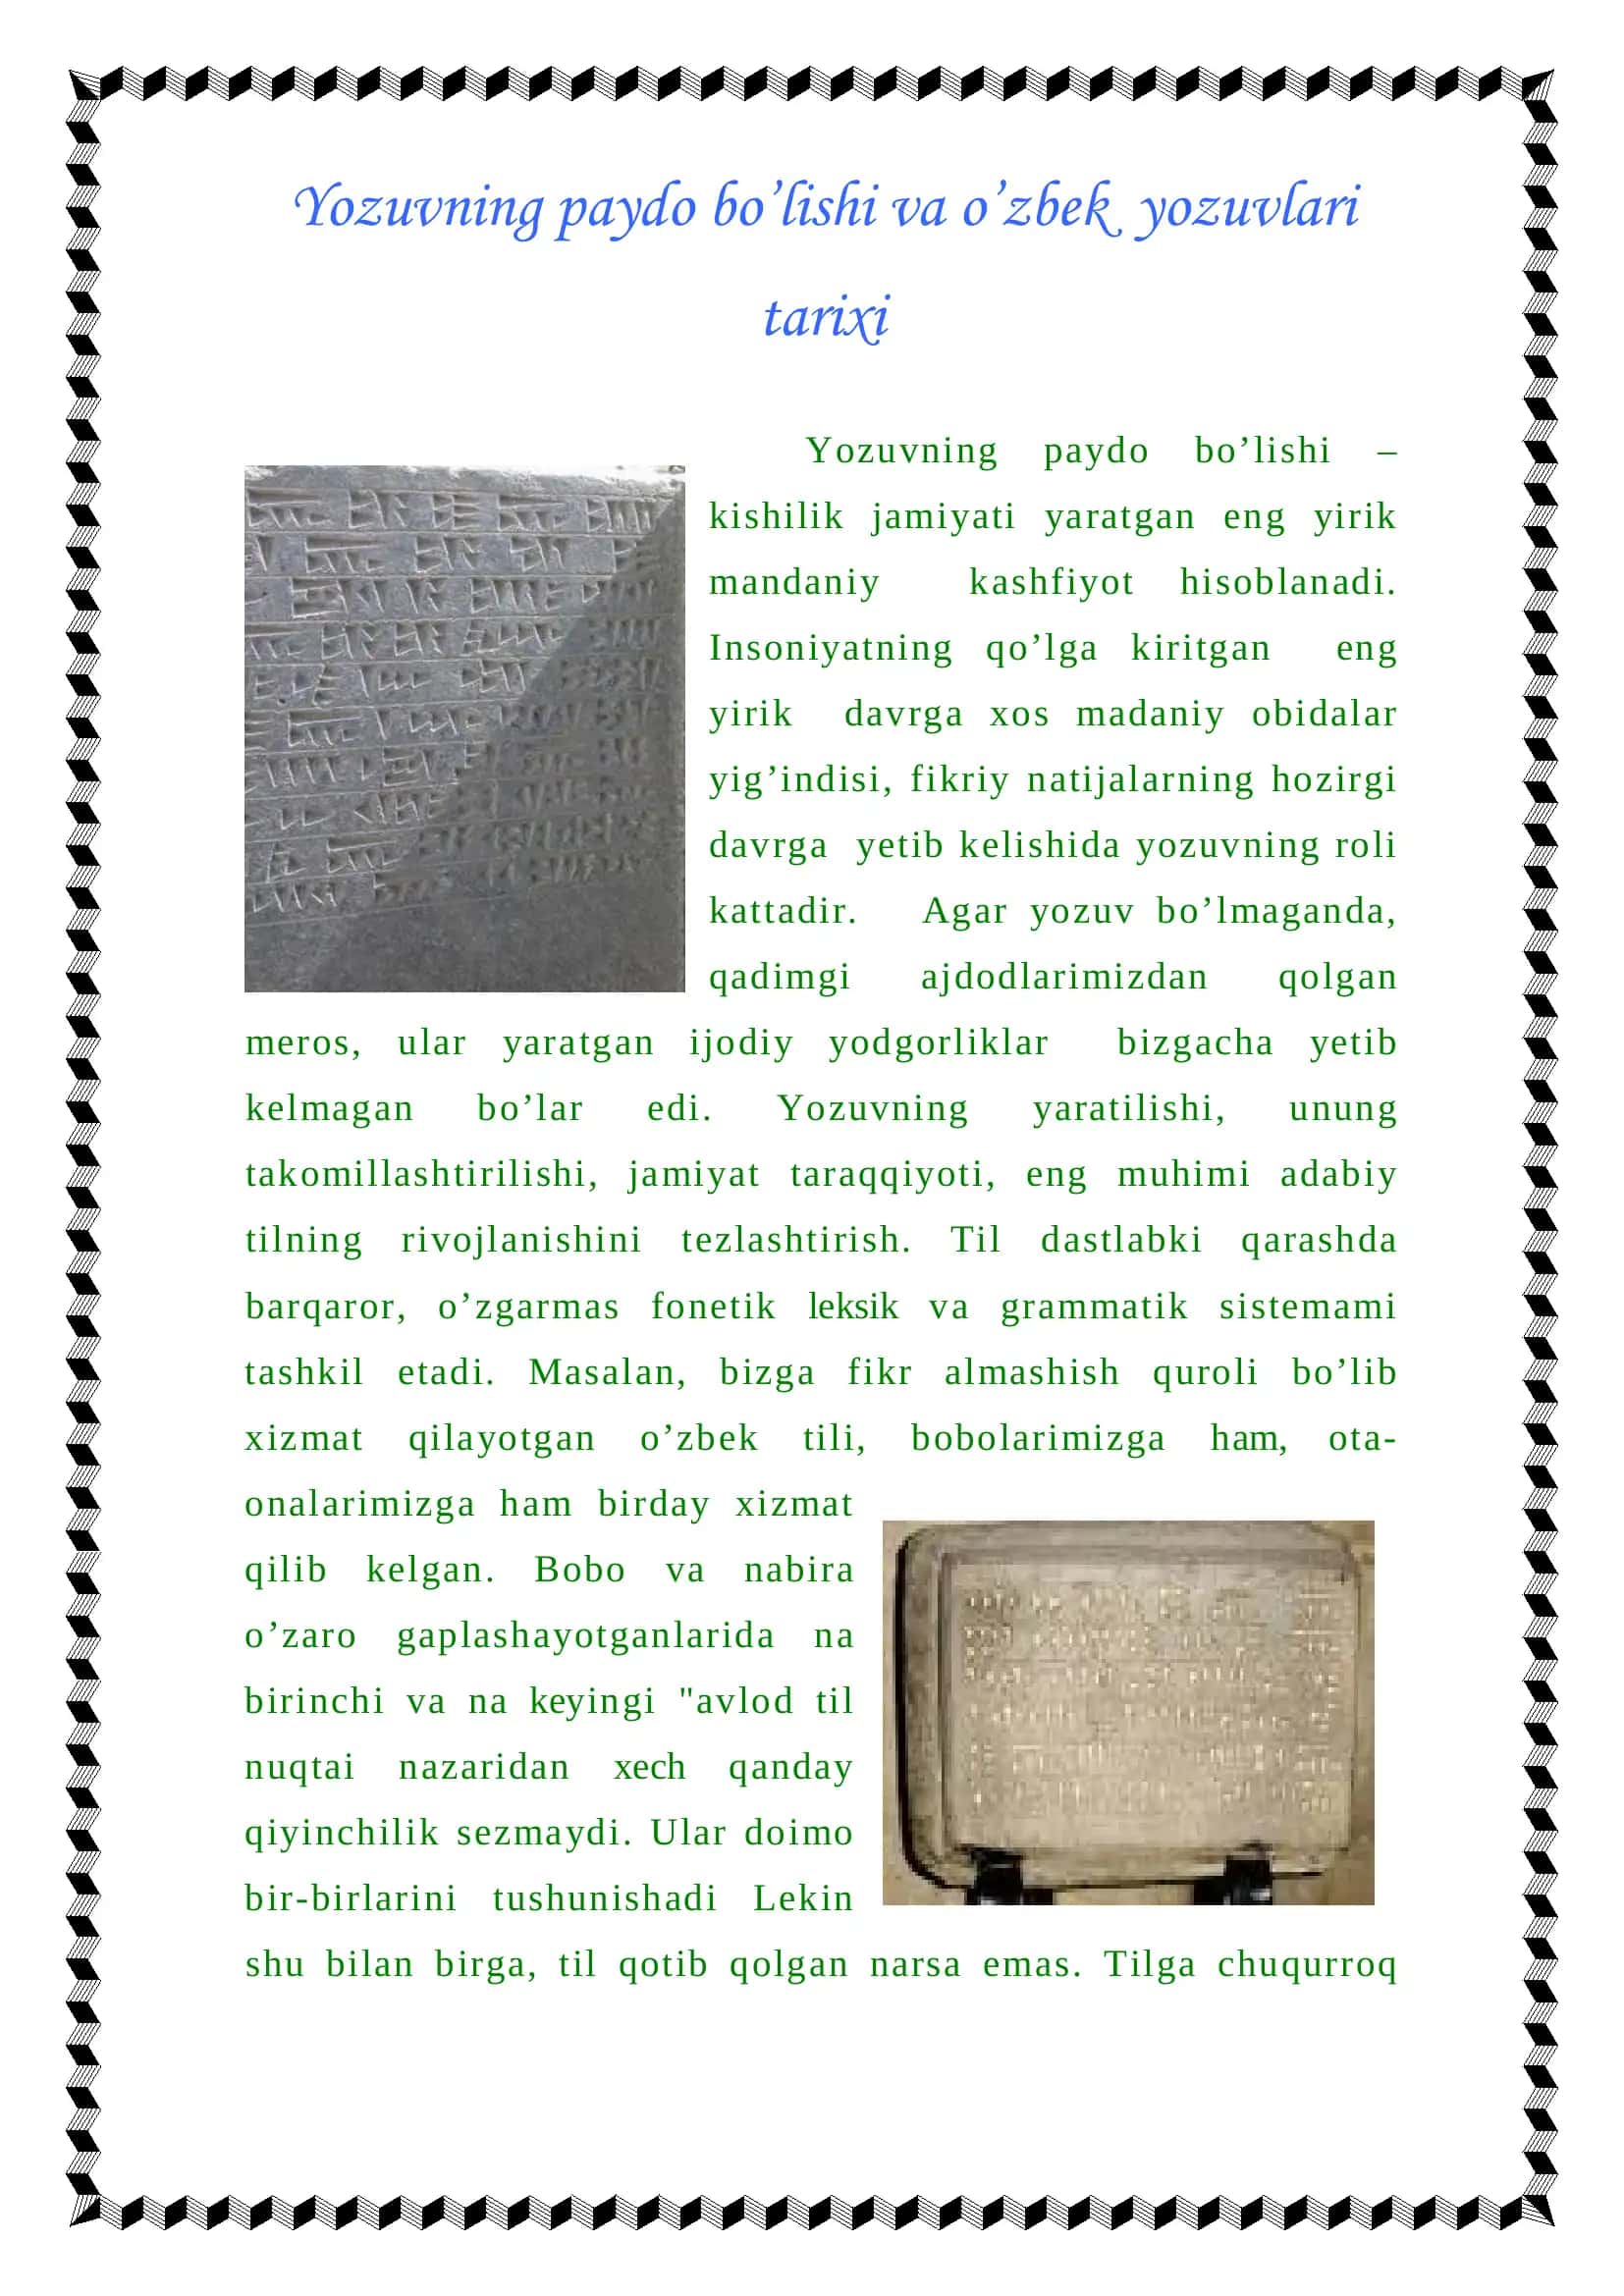 Yozuvning paydo bo’lishi va o’zbek yozuvlari
tarixi
Yozuvning paydo bo’lishi –
kishilik jamiyati yaratgan eng yirik
mandaniy kashfiyot hisoblanadi.
Insoniyatning qo’lga kiritgan eng
yirik davrga xos madaniy obidalar
yig’indisi, fikriy natijalarning hozirgi
davrga yetib kelishida yozuvning roli
kattadir. Agar yozuv bo’lmaganda,
qadimgi ajdodlarimizdan qolgan
meros, ular yaratgan ijodiy yodgorliklar bizgacha yetib
kelmagan bo’lar edi. Yozuvning yaratilishi, unung
takomillashtirilishi, jamiyat taraqqiyoti, eng muhimi adabiy
tilning rivojlanishini tezlashtirish. Til dastlabki qarashda
barqaror, o’zgarmas fonetik leksik va grammatik sistemami
tashkil etadi. Masalan, bizga fikr almashish quroli bo’lib
xizmat qilayotgan o’zbek tili, bobolarimizga ham, ota-
onalarimizga ham birday xizmat
qilib kelgan. Bobo va nabira
o’zaro gaplashayotganlarida na
birinchi va na keyingi "avlod til
nuqtai nazaridan xech qanday
qiyinchilik sezmaydi. Ular doimo
bir-birlarini tushunishadi Lekin
shu bilan birga, til qotib qolgan narsa emas. Tilga chuqurroq